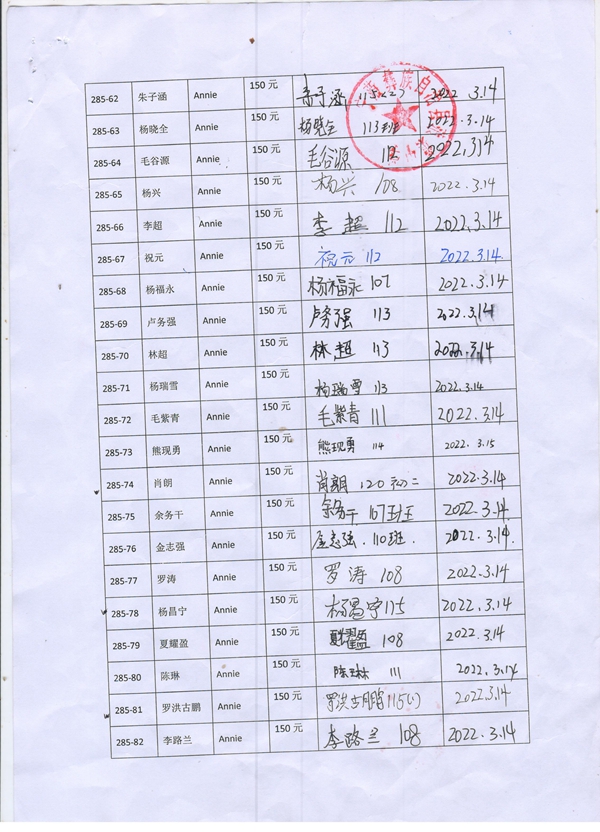 285-62 朱子涵 Annie 150 元 朱子涵 2022 3.14
285-63 杨晓全 Annie 150 元 杨晓全 113班 2022.3.14
285-64 毛谷源 Annie 150 元 毛谷源 112 2022.3.14
285-65 杨兴 Annie 150 元 杨兴 108 2022.3.14
285-66 李超 Annie 150 元 李超 112 2022.3.14
285-67 祝元 Annie 150 元 祝元 112 2022.3.14
285-68 杨福永 Annie 150 元 杨福永 107 2022.3.14
285-69 卢务强 Annie 150 元 卢务强 113 2022.3.14
285-70 林超 Annie 150 元 林超 113 2022.3.14
285-71 杨瑞雪 Annie 150 元 杨瑞雪 113 2022.3.14
285-72 毛紫青 Annie 150 元 毛紫青 111 2022.3.14
285-73 熊现勇 Annie 150 元 熊现勇 114 2022.3.15
285-74 肖朗 Annie 150 元 肖朗 120 2022.3.14
285-75 余务干 Annie 150 元 余务干 107班 2022.3.14
285-76 金志强 Annie 150 元 金志强.110班. 2022.3.14
285-77 罗涛 Annie 150 元 罗涛 108 2022.3.14
285-78 杨昌宁 Annie 150 元 杨昌宁 115 2022.3.14
285-79 夏耀盈 Annie 150 元 夏耀盈 108 2022.3.14
285-80 陈琳 Annie 150 元 陈琳 111 2022.3.14
285-81 罗洪古鹏 Annie 150 元 罗洪古鹏 115 2022.3.14
285-82 李路兰 Annie 150 元 李路兰 108 2022.3.14
彝族自